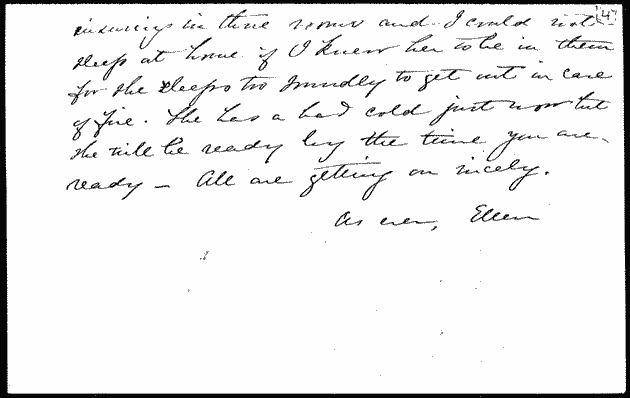 in those rooms and I could not
sleep at home if I knew her to be in them
for she sleeps too soundly to get out in case
of fire. She has a bad cold just now but
she will be ready by the time you are
ready – All are getting on nicely.
As ever, Ellen